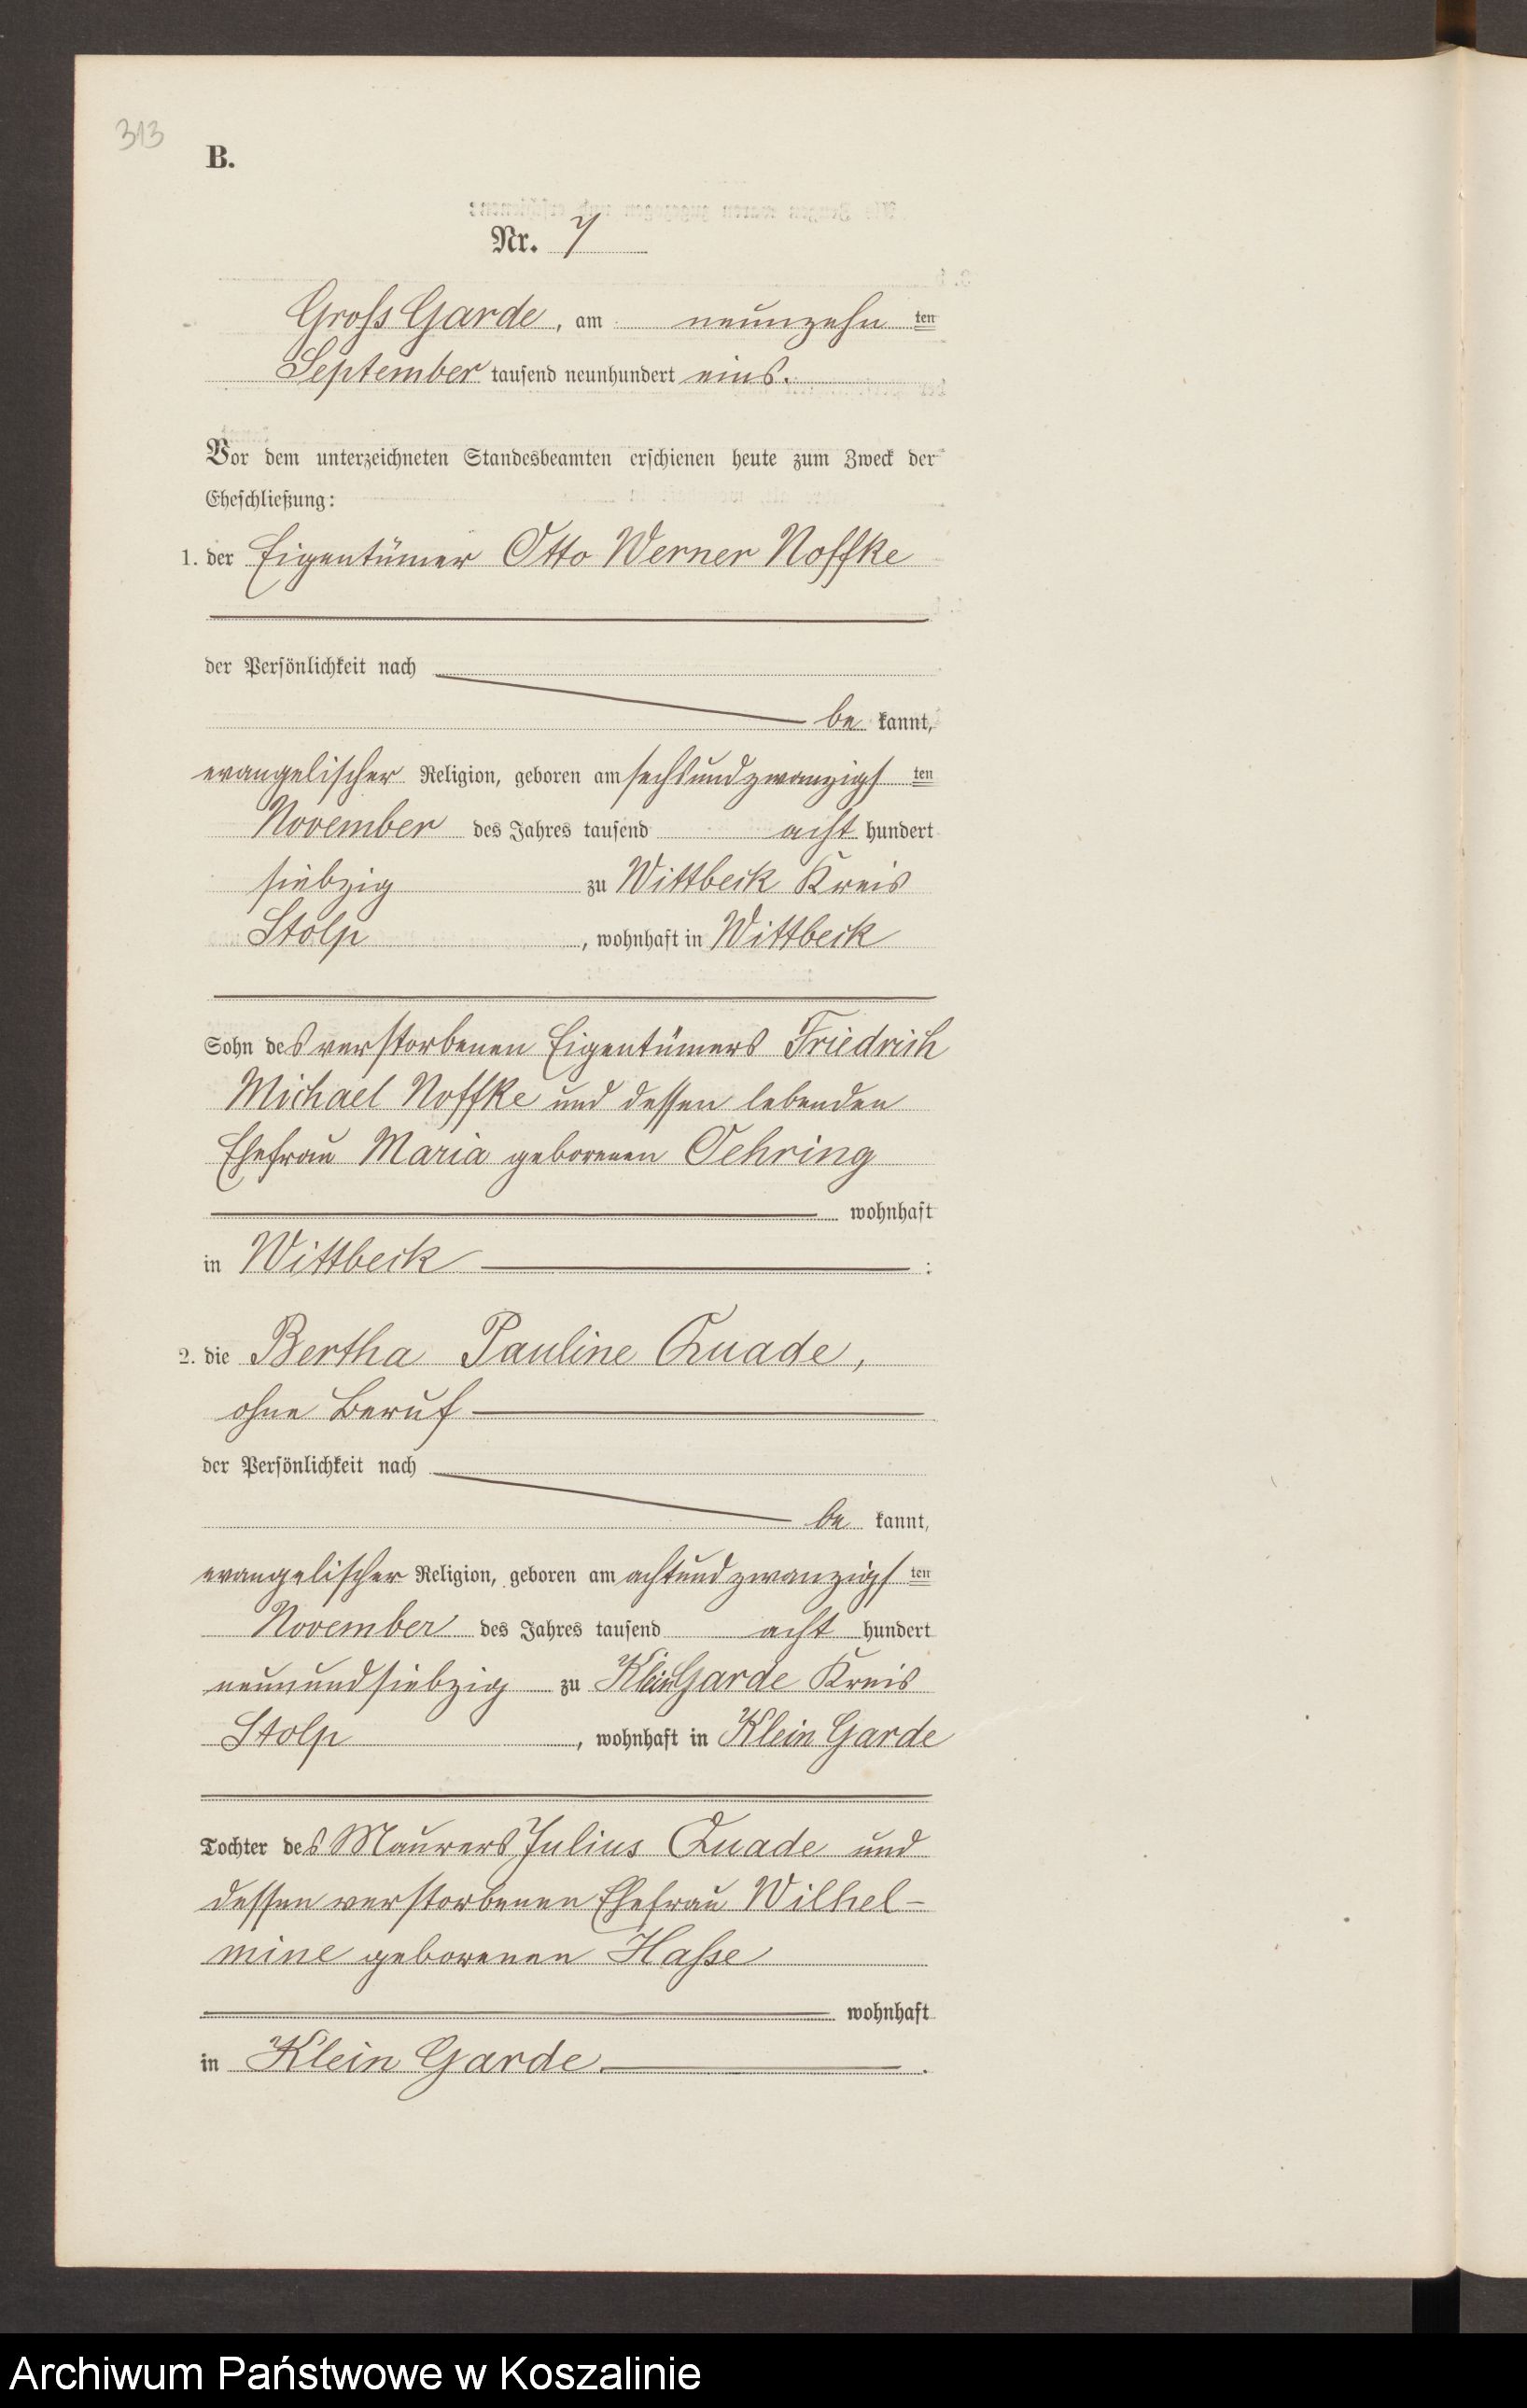 313
B.
Nr. 7
Gross Garde, am neunzehn ten
September tausend neunhundert eins.
Vor dem unterzeichneten Standesbeamten erschienen heute zum Zweck der
Eheschließung:
1. der Eigentümer Otto Werner Noffke
der Persönlichkeit nach
be kannt,
evangelischer Religion, geboren am sechsundzwanzigs ten
November des Jahres tausend acht hundert
siebzig zu Wittbeck Kreis
Stolp, wohnhaft in Wittbeck
Sohn des verstorbenen Eigentümers Friedrich
Michael Noffke und dessen lebenden
Ehefrau Maria geborenen Oehring
wohnhaft
in Wittbeck :
2. die Bertha Pauline Quade,
ohne Beruf
der Persönlichkeit nach
be kannt,
evangelischer Religion, geboren am achtundzwanzigs ten
November des Jahres tausend acht hundert
neunundsiebzig zu Klein Garde Kreis
Stolp, wohnhaft in Klein Garde
Tochter des Maurers Julius Quade und
dessen verstorbenen Ehefrau Wilhel-
mine geborenen Hasse
wohnhaft
in Klein Garde.
Archiwum Państwowe w Koszalinie